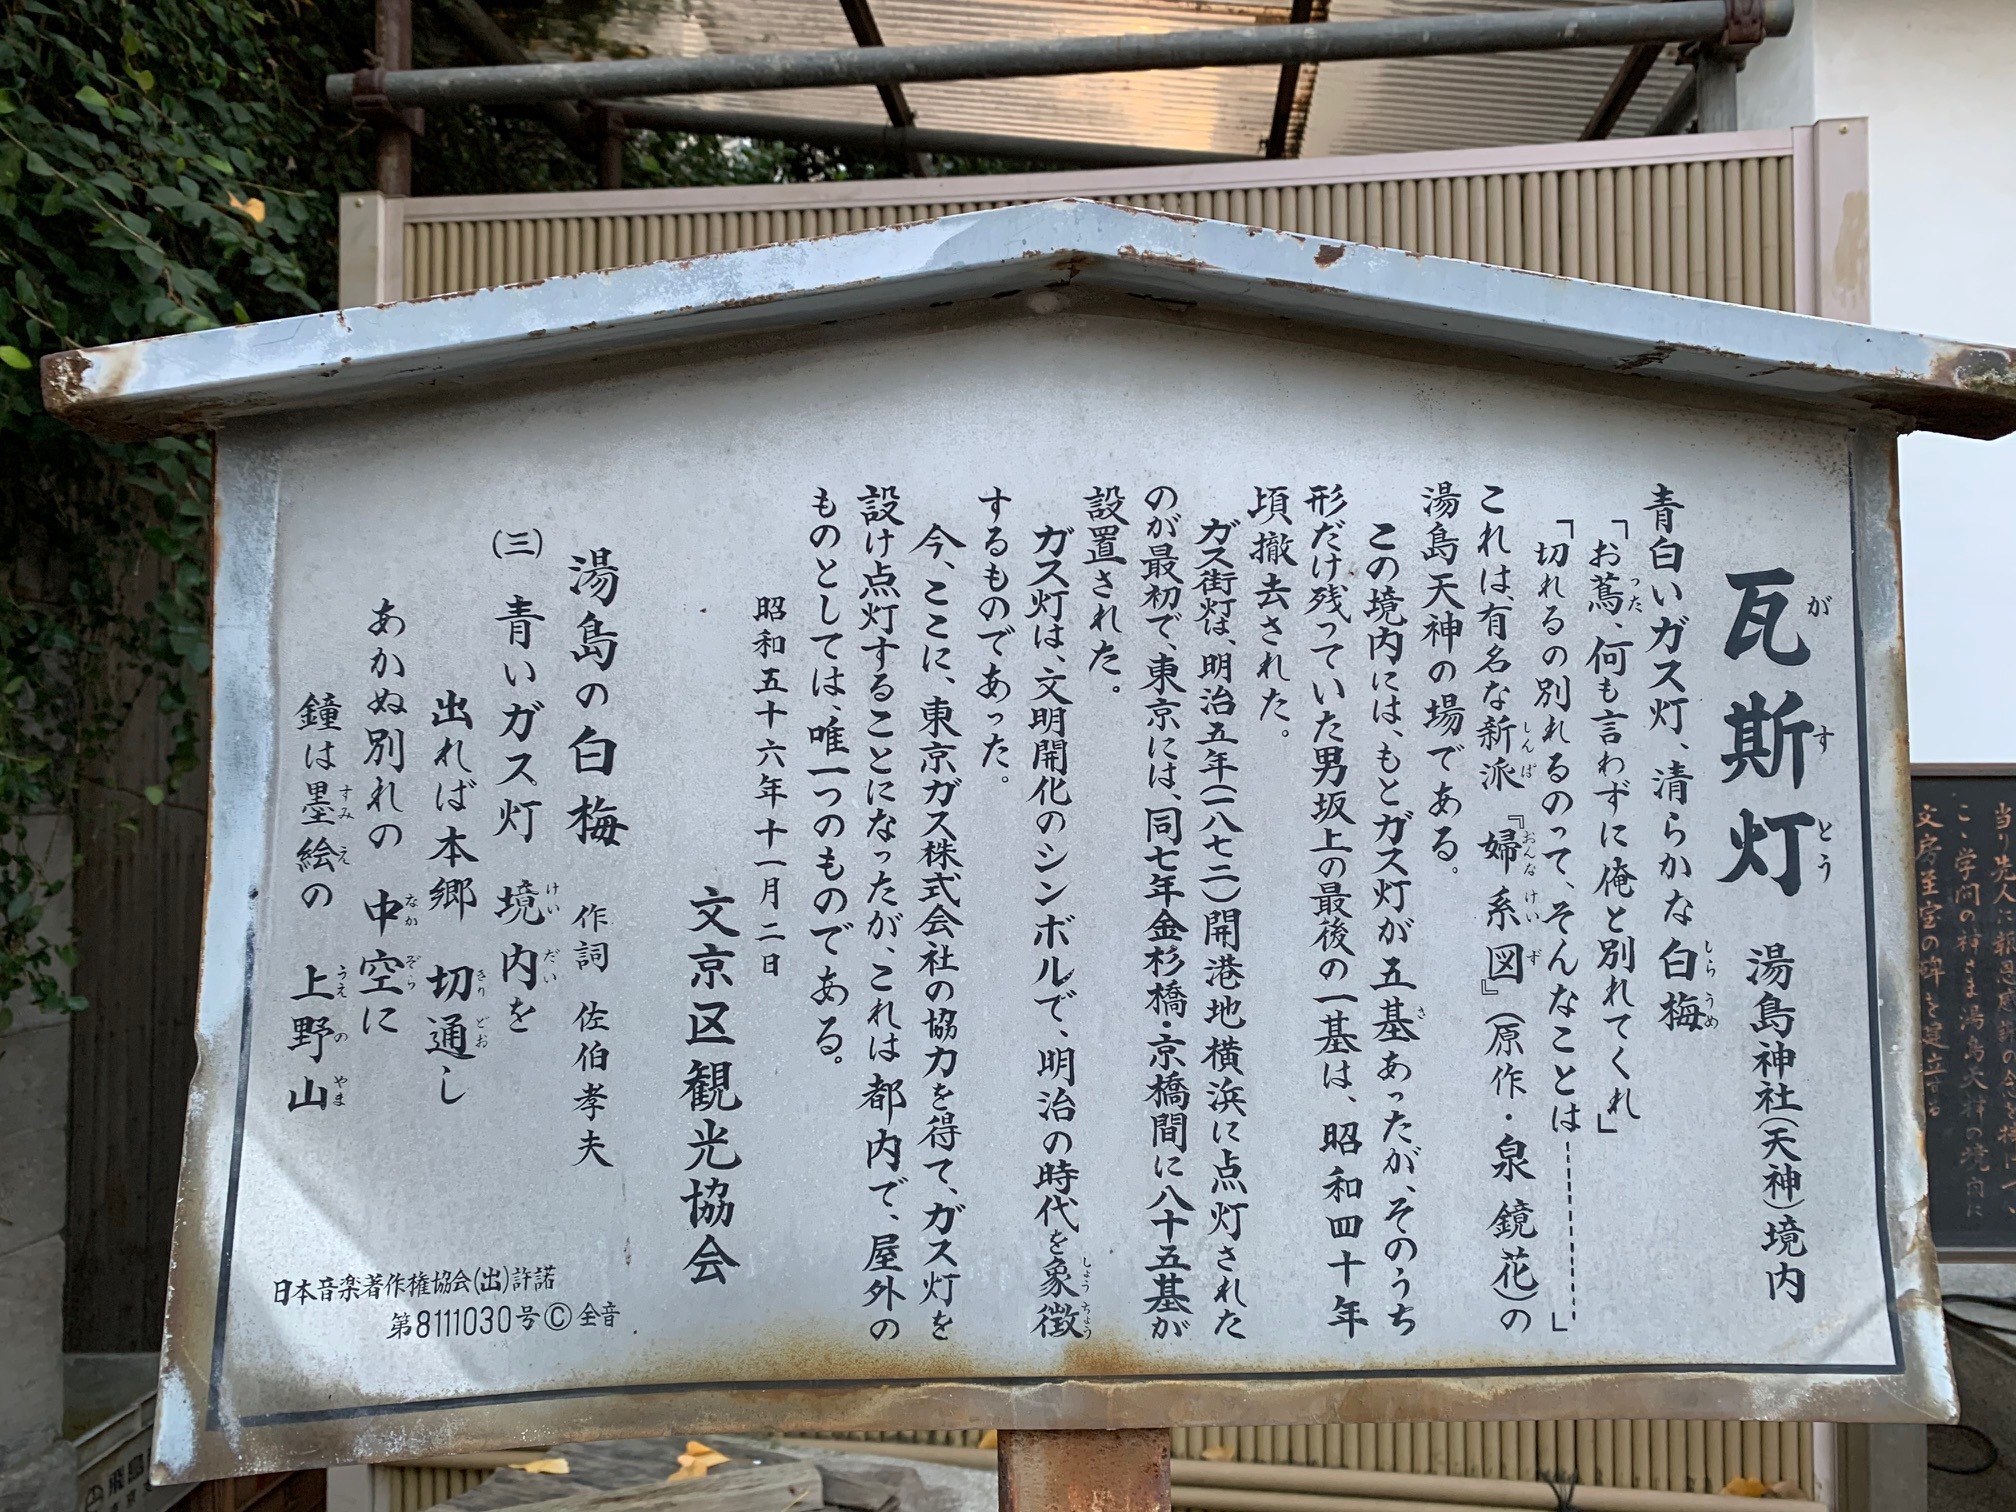 瓦斯灯 湯島神社(天神)境内
がすとう
青白いガス灯、清らかな白梅
しらうめ
「お蔦、何も言わずに俺と別れてくれ」
つた
「切れるの別れるのって、そんなことは-------」
これは、有名な新派『婦系図』(原作・泉 鏡花)の
しんぱ おんなけいず
湯島天神の場である。
この境内には、もとガス灯が五基あったが、そのうち
き
形だけ残っていた男坂上の最後の一基は、昭和四十年
頃撤去された。
ガス街灯は、明治五年(一八七二)開港地横浜に点灯された
のが最初で、東京には、同七年金杉橋・京橋間に八十五基が
設置された。
ガス灯は、文明開化のシンボルで、明治の時代を象徴
しょうちょう
するものであった。
今、ここに、東京ガス株式会社の協力を得て、ガス灯を
設け点灯することになったが、これは都内で、屋外の
ものとしては、唯一つのものである。
昭和五十六年十一月二日
文京区観光協会
湯島の白梅 作詞 佐伯孝夫
(三) 青いガス灯 境内を
けいだい
出れば本郷 切通し
きりどお
あかぬ別れの 中空に
なかぞら
鐘は墨絵の 上野山
すみえ うえのやま
日本音楽著作権協会(出)許諾
第8111030号Ⓒ全音